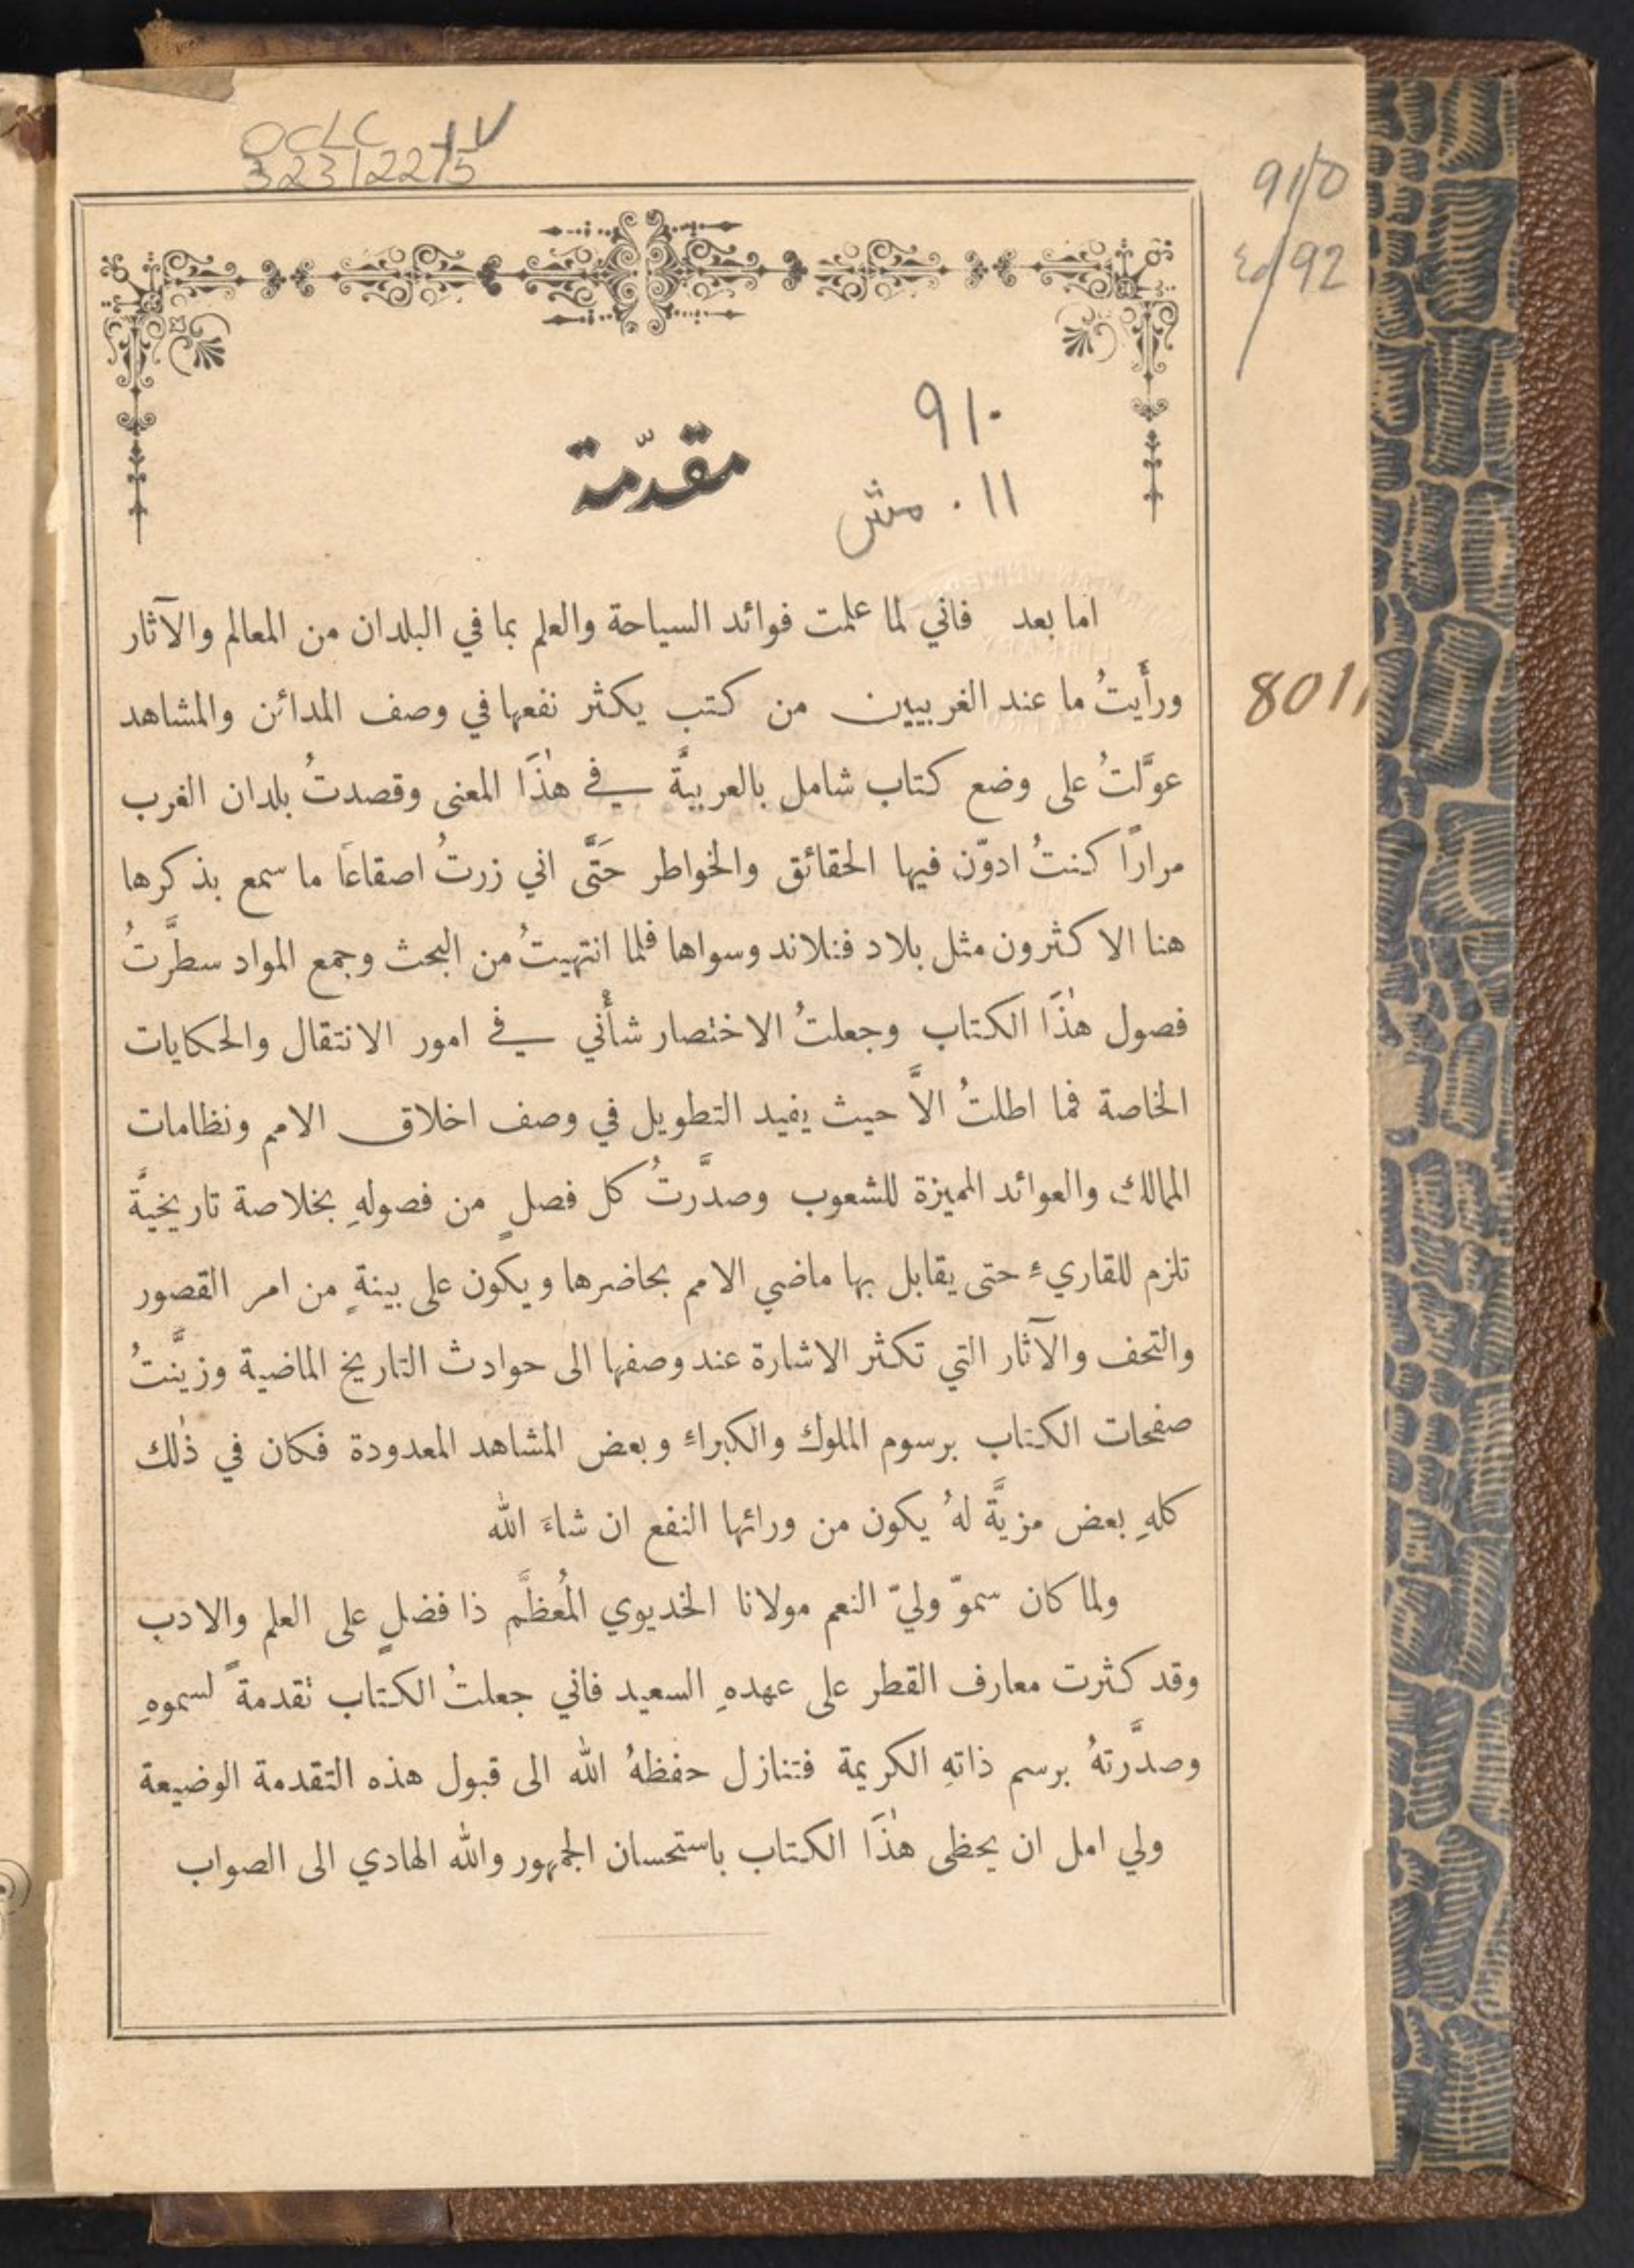 OCLC
32312275
910
92
910
011 مش
8011
مقدّمة
اما بعد فاني لما علمت فوائد السياحة والعلم بما في البلدان من المعالم والآثار
ورأَيتُ ما عند الغربيين من كتب يكثر نفعها في وصف المدائن والمشاهد
عوَّلتُ على وضع كتاب شامل بالعربيَّة في هٰذَا المعنى وقصدتُ بلدان الغرب
مراراً كنتُ ادوّن فيها الحقائق والخواطر حَتَّى اني زرتُ اصقاعاً ما سمع بذكرها
هنا الاكثرون مثل بلاد فنلاند وسواها فلما انتهيتُ من البحث وجمع المواد سطَّرتُ
فصول هٰذَا الكتاب وجعلتُ الاختصار شأْني في امور الانتقال والحكايات
الخاصة فما اطلتُ الاَّ حيث يفيد التطويل في وصف اخلاق الامم ونظامات
الممالك والعوائد المميزة للشعوب وصدَّرتُ كل فصلٍ من فصولهِ بخلاصة تاريخيَّة
تلزم للقاريءِ حتى يقابل بها ماضي الامم بحاضرها ويكون على بينةٍ من امر القصور
والتحف والآثار التي تكثر الاشارة عند وصفها الى حوادث التاريخ الماضية وزيَّنتُ
صفحات الكتاب برسوم الملوك والكبراءِ وبعض المشاهد المعدودة فكان في ذٰلك
كلهِ بعض مزيَّة لهُ يكون من ورائها النفع ان شاءَ الله
ولما كان سموّ وليّ النعم مولانا الخديوي المُعظَّم ذا فضلٍ على العلم والادب
وقد كثرت معارف القطر على عهدهِ السعيد فاني جعلتُ الكتاب تقدمةً لسموهِ
وصدَّرتهُ برسم ذاتهِ الكريمة فتنازل حفظهُ الله الى قبول هذه التقدمة الوضيعة
ولي امل ان يحظى هٰذَا الكتاب باستحسان الجمهور والله الهادي الى الصواب